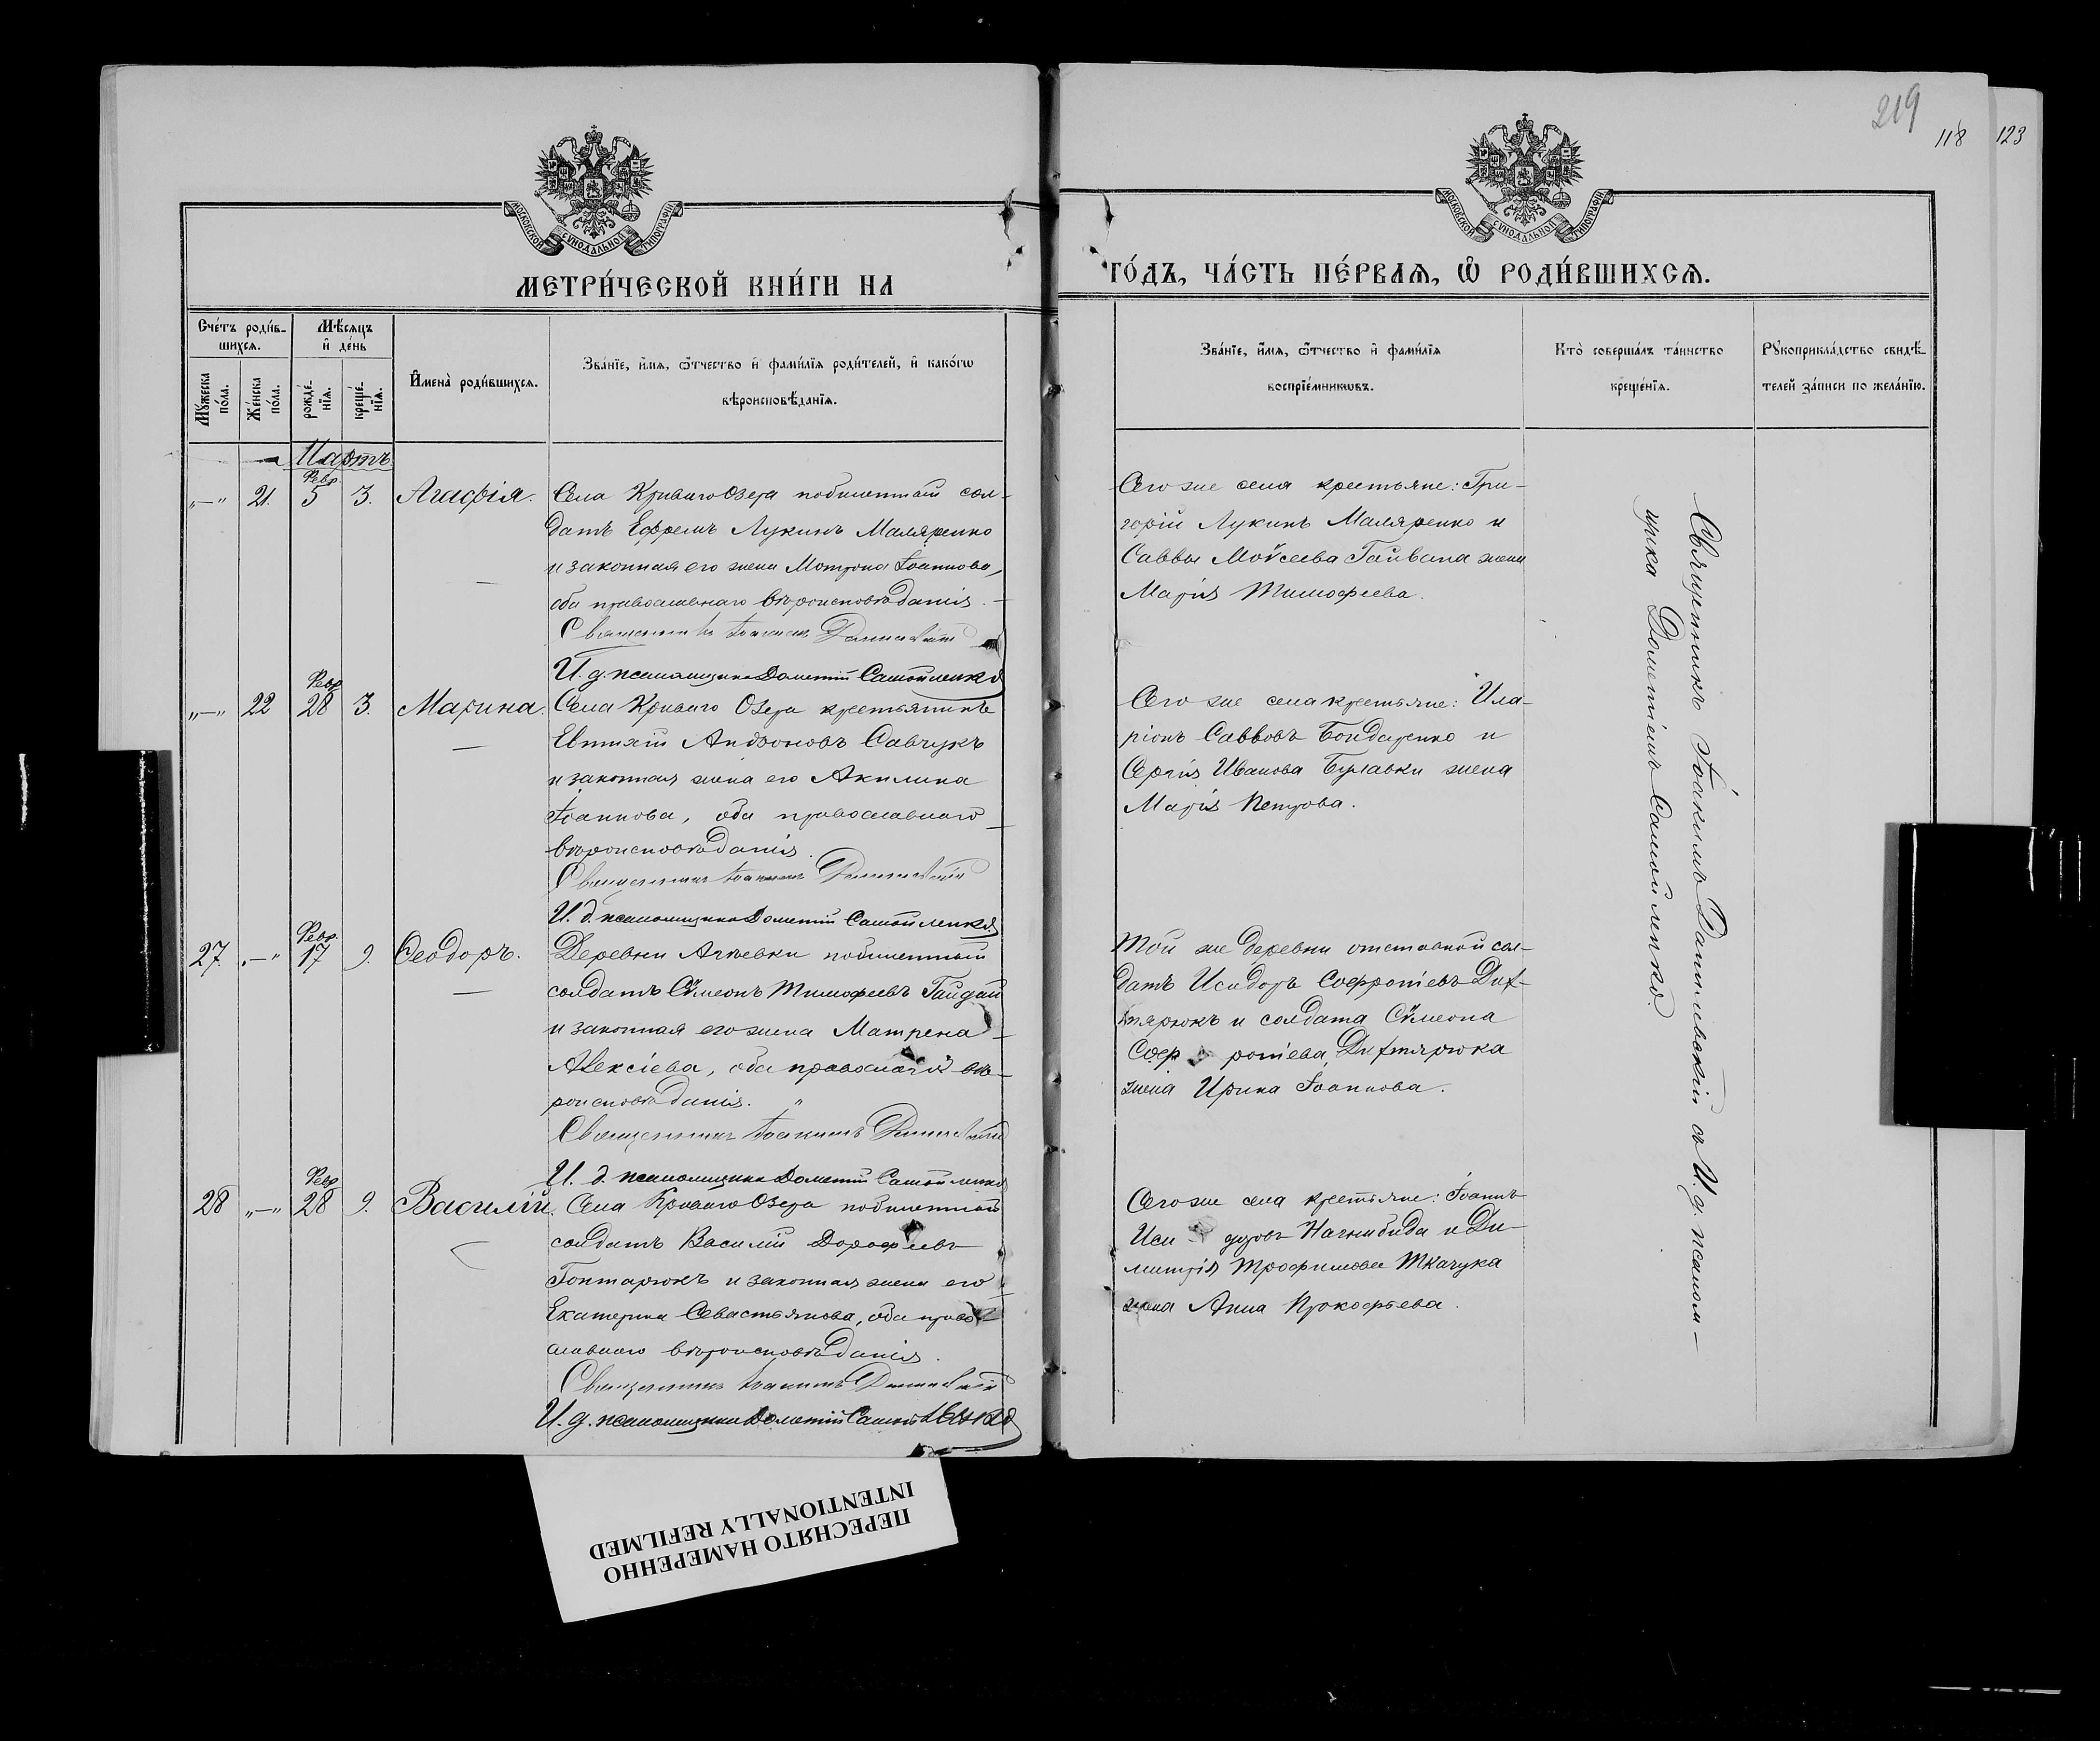 219
118
123
МОСКОВСКОЙ СѴНОДАЛЬНОЙ ТИПОГРАФІИ
МОСКОВСКОЙ СѴНОДАЛЬНОЙ ТИПОГРАФІИ
МЕТРИ́ЧЕСКОЙ КНИ́ГИ НА
ГО́ДЪ, ЧА́СТЬ ПЕ́РВАѦ, Ѽ РОДИ́ВШИХСѦ.
Сче́тъ роди́в-
шихсѧ.
Мѣ́сѧцъ
и҆ де́нь
Мꙋ́жеска
по́ла.
Же́нска
по́ла.
рожде́-
нїѧ.
креще́-
нїѧ.
И҆мена̀ роди́вшихсѧ.
Зва́нїе, и҆́мѧ, ѻ҆́тчество и҆ фами́лїѧ роди́телей, и҆ како́гѡ
вѣроисповѣ́данїѧ.
Зва́нїе, и҆́мѧ, ѻ҆́тчество и҆ фами́лїѧ
воспрїе́мникѡвъ.
Кто̀ соверша́лъ та́инство
креще́нїѧ.
Рꙋкоприкла́дство свидѣ́-
телей за́писи по жела́нїю.
Мартъ
Февр.
„—„ 21. 5 3. Агафія.
Села Криваго Озера побилетный сол-
датъ Ефремъ Лукинъ Маляренко
и законная его жена Мотрона Іоаннова,
оба православнаго вѣроисповѣданія.
Священникъ Іоакимъ Данилевскій
И. д. псаломщика Дометій Самойленко
Сего же села крестьяне: Гри-
горій Лукинъ Маляренко и
Саввы Моѵсеева Гайвана жена
Марія Тимофеева.
Февр
„—„ 22 28 3. Марина.
Села Криваго Озера крестьянинъ
Евтихій Андроновъ Савчукъ
и законная жена его Акилина
Іоаннова, оба православнаго
вѣроисповѣданія.
Священникъ Іоакимъ Данилевскій
И. д. псаломщика Дометій Самойленко
Сего же села крестьяне: Ила-
ріонъ Саввовъ Бондаренко и
Сергія Иванова Булавки жена
Марія Петрова.
Февр.
27. „—„ 17 9. Ѳеодоръ.
Деревни Агѣевки побилетный
солдатъ Сѵмеонъ Тимофеевъ Гайдай
и законная его жена Матрена
Алексіева, оба православнаго вѣ-
роисповѣданія.
Священникъ Іоакимъ Данилевскій
И. д. псаломщика Дометій Самойленко
Той же деревни отставной сол-
датъ Исидоръ Софроніевъ Дих-
тярюкъ и солдата Сѵмеона
Соф роніева Дихтярюка
жена Ирина Іоаннова.
Февр
28 „—„ 28 9. Василій.
Села Криваго Озера побилетный
солдатъ Василій Дорофеевъ
Гонтарюкъ и законная жена его
Екатерина Севастьянова, оба право-
славнаго вѣроисповѣданія.
Священникъ Іоакимъ Данилевскій
И. д. псаломщика Дометій Самойленко
Сего же села крестьяне: Іоаннъ
Иси доровъ Нагнибида и Ди-
митрія Трофимова Ткачука
жена Анна Прокофьева.
Священникъ Іоакимъ Данилевскій съ И. д. псалом-
щика Дометіемъ Самойленко.
ПЕРЕСНЯТО НАМЕРЕННО
INTENTIONALLY REFILMED